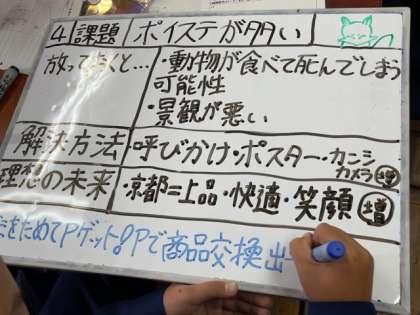 4 課題 ポイステが多い
放っておくと… ・動物が食べて死んでしまう
可能性
・景観が悪い
解決方法 呼びかけ・ポスター・カンシ
カメラ増
理想の未来 ・京都=上品・快適・笑顔増
をためてPゲット!Pで商品交換出